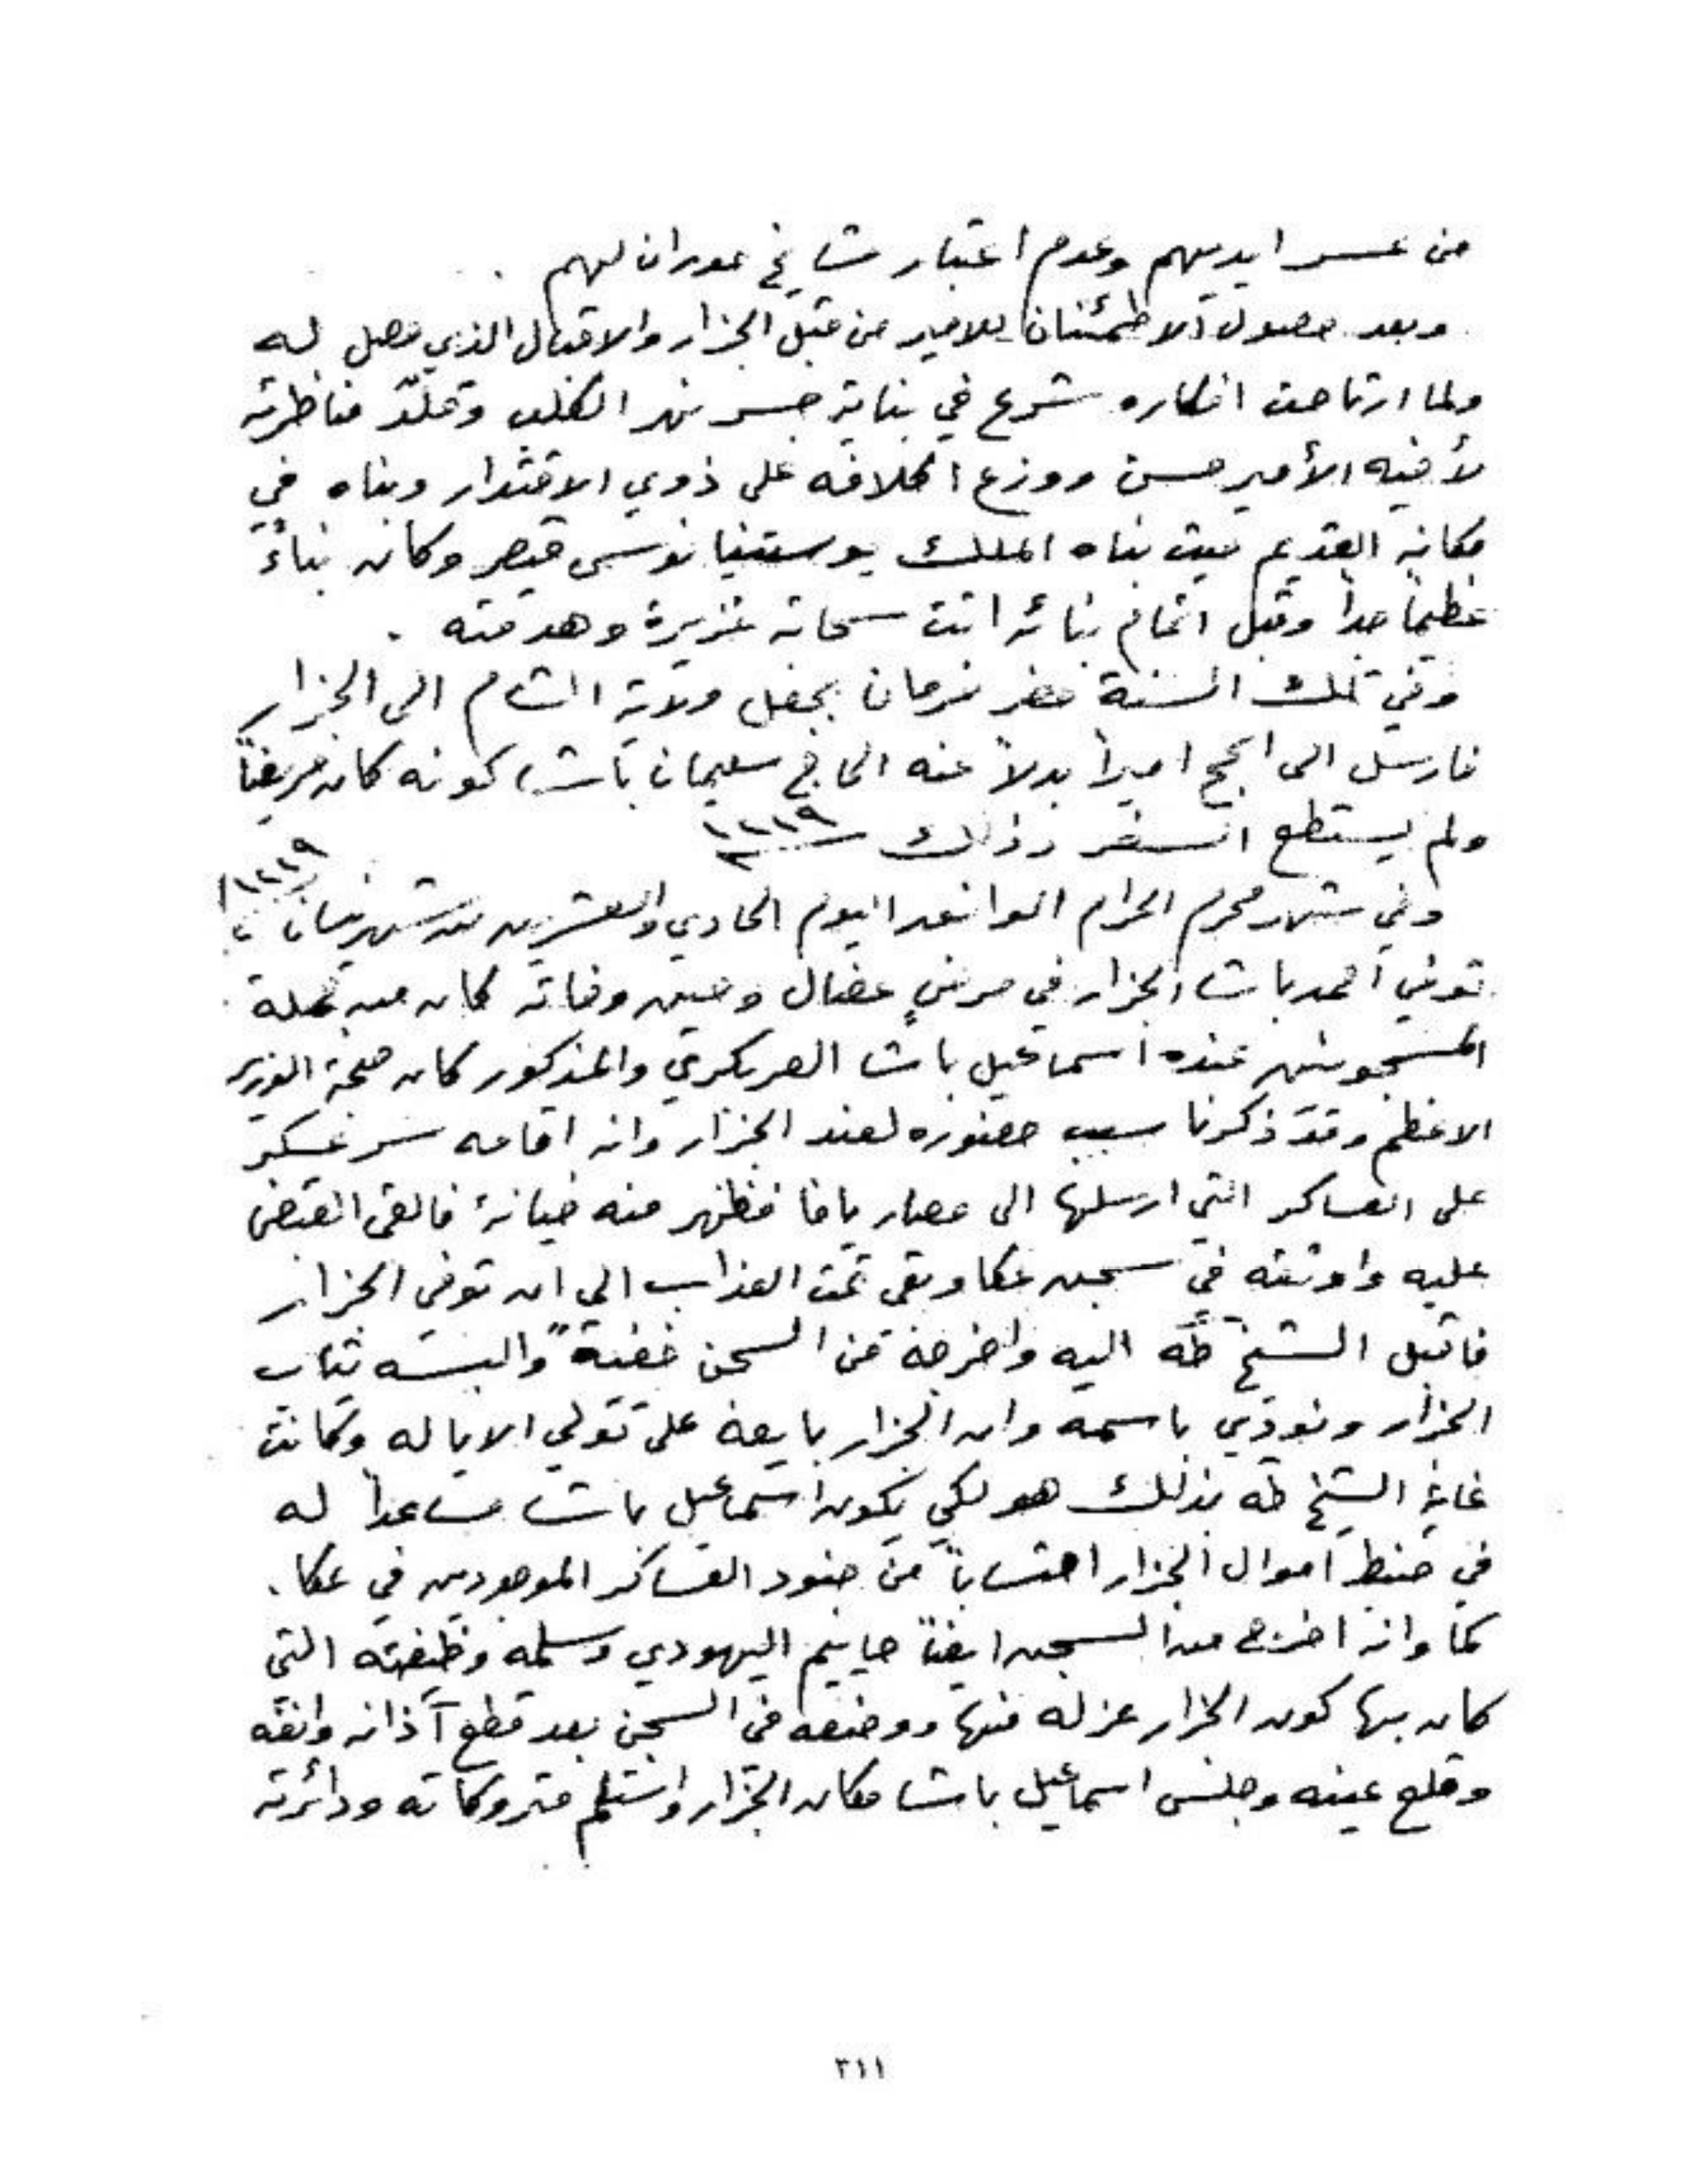 من عسر ايديهم وعدم اعتبار مشايخ حوران لهم .
وبعد حصول الاطمئنان للامير من قبل الجزار والاقبال الذي حصل له
ولما ارتاحت افكاره شرع في بناية جسر نهر الكلب وقلّد مناظرته
لأخيه الأمير حسن ووزع اكلافه على ذوي الاقتدار وبناه في
مكانه القديم حيث بناه الملك يوستنيانوس قيصر وكان بناءً
عظيماً جداً وقبل اتمام بنائه اتت سحابة غزيرة وهدمته .
وفي تلك السنة حضر فرمان بجعل ولاية الشام الى الجزار
فارسل الى الحج اميراً بدلاً عنه الحاج سليمان باشا كونه كان مريضاً
ولم يستطع السفر وذلك سنة ١٢١٩
وفي شهر محرم الحرام الموافق اليوم الحادي والعشرين من شهر نيسان ١٢١٩
توفي احمد باشا الجزار في مرضٍ عضال وحين وفاته كان من جملة
المسجونين عنده اسماعيل باشا والمذكور كان صحبة الوزير
الاعظم وقد ذكرنا سبب حضوره لعند الجزار وانه اقامه سر عسكر
على العساكر التي ارسلها الى حصار يافا فظهر منه خيانة فالقى القبض
عليه واوثقه في سجن عكا وبقى تحت العذاب الى ان توفى الجزار
فاقبل الشيخ طه اليه واخرجه من السجن خفيةً والبسه ثياب
الجزار ونودي باسمه وان الجزار بايعه على تولي الاياله وكانت
غاية الشيخ طه بذلك هو لكي يكون اسماعيل باشا مساعداً له
في ضبط اموال الجزار احتساباً من جنود العساكر الموجودين في عكا .
كما وانه اخرج من السجن ايضاً حاييم اليهودي وسلمه وظيفته التي
كان بها كون الجزار عزله منها ووضعه في السجن بعد قطع آذانه وانفه
وقلع عينه وجلس اسماعيل باشا مكان الجزار واستلم متروكاته ودائرته
٣١١